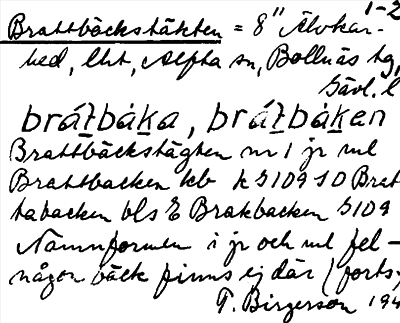 1-2
Brattbäckstäkten = 8" Älvkar-
hed, lht, Alfta sn, Bollnäs tg,
Gävl. l
brát̠bák̠a, brát̠bák̠en
Brattbäckstägten nr 1 jr ml
Brattbacken kb k S 109 S D Brat
tabacken bls E Brakbacken S 109
Namnformen i jr och ml fel-
någon bäck finns ej där (forts,
T. Birgerson 194